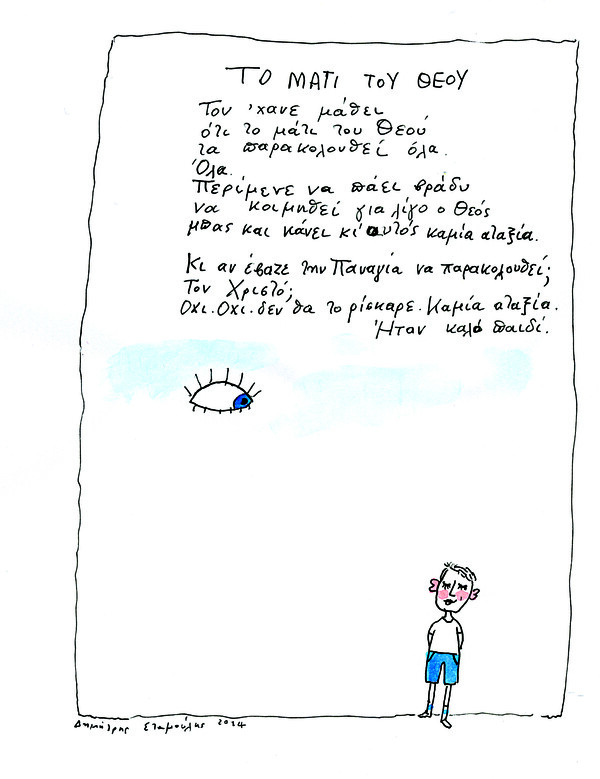 ΤΟ ΜΑΤΙ ΤΟΥ ΘΕΟΥ
Τον 'χανε μάθει
ότι το μάτι του Θεού
τα παρακολουθεί όλα.
Όλα.
Περίμενε να πάει βράδυ
να κοιμηθεί για λίγο ο Θεός
μπας και κάνει κι' αυτός καμία αταξία.
Κι αν έβαζε την Παναγία να παρακολουθεί;
Τον Χριστό;
Όχι. Όχι. δεν θα το ρίσκαρε. Καμία αταξία.
Ήταν καλό παιδί.
Δημήτρης Σταμούλης 2024